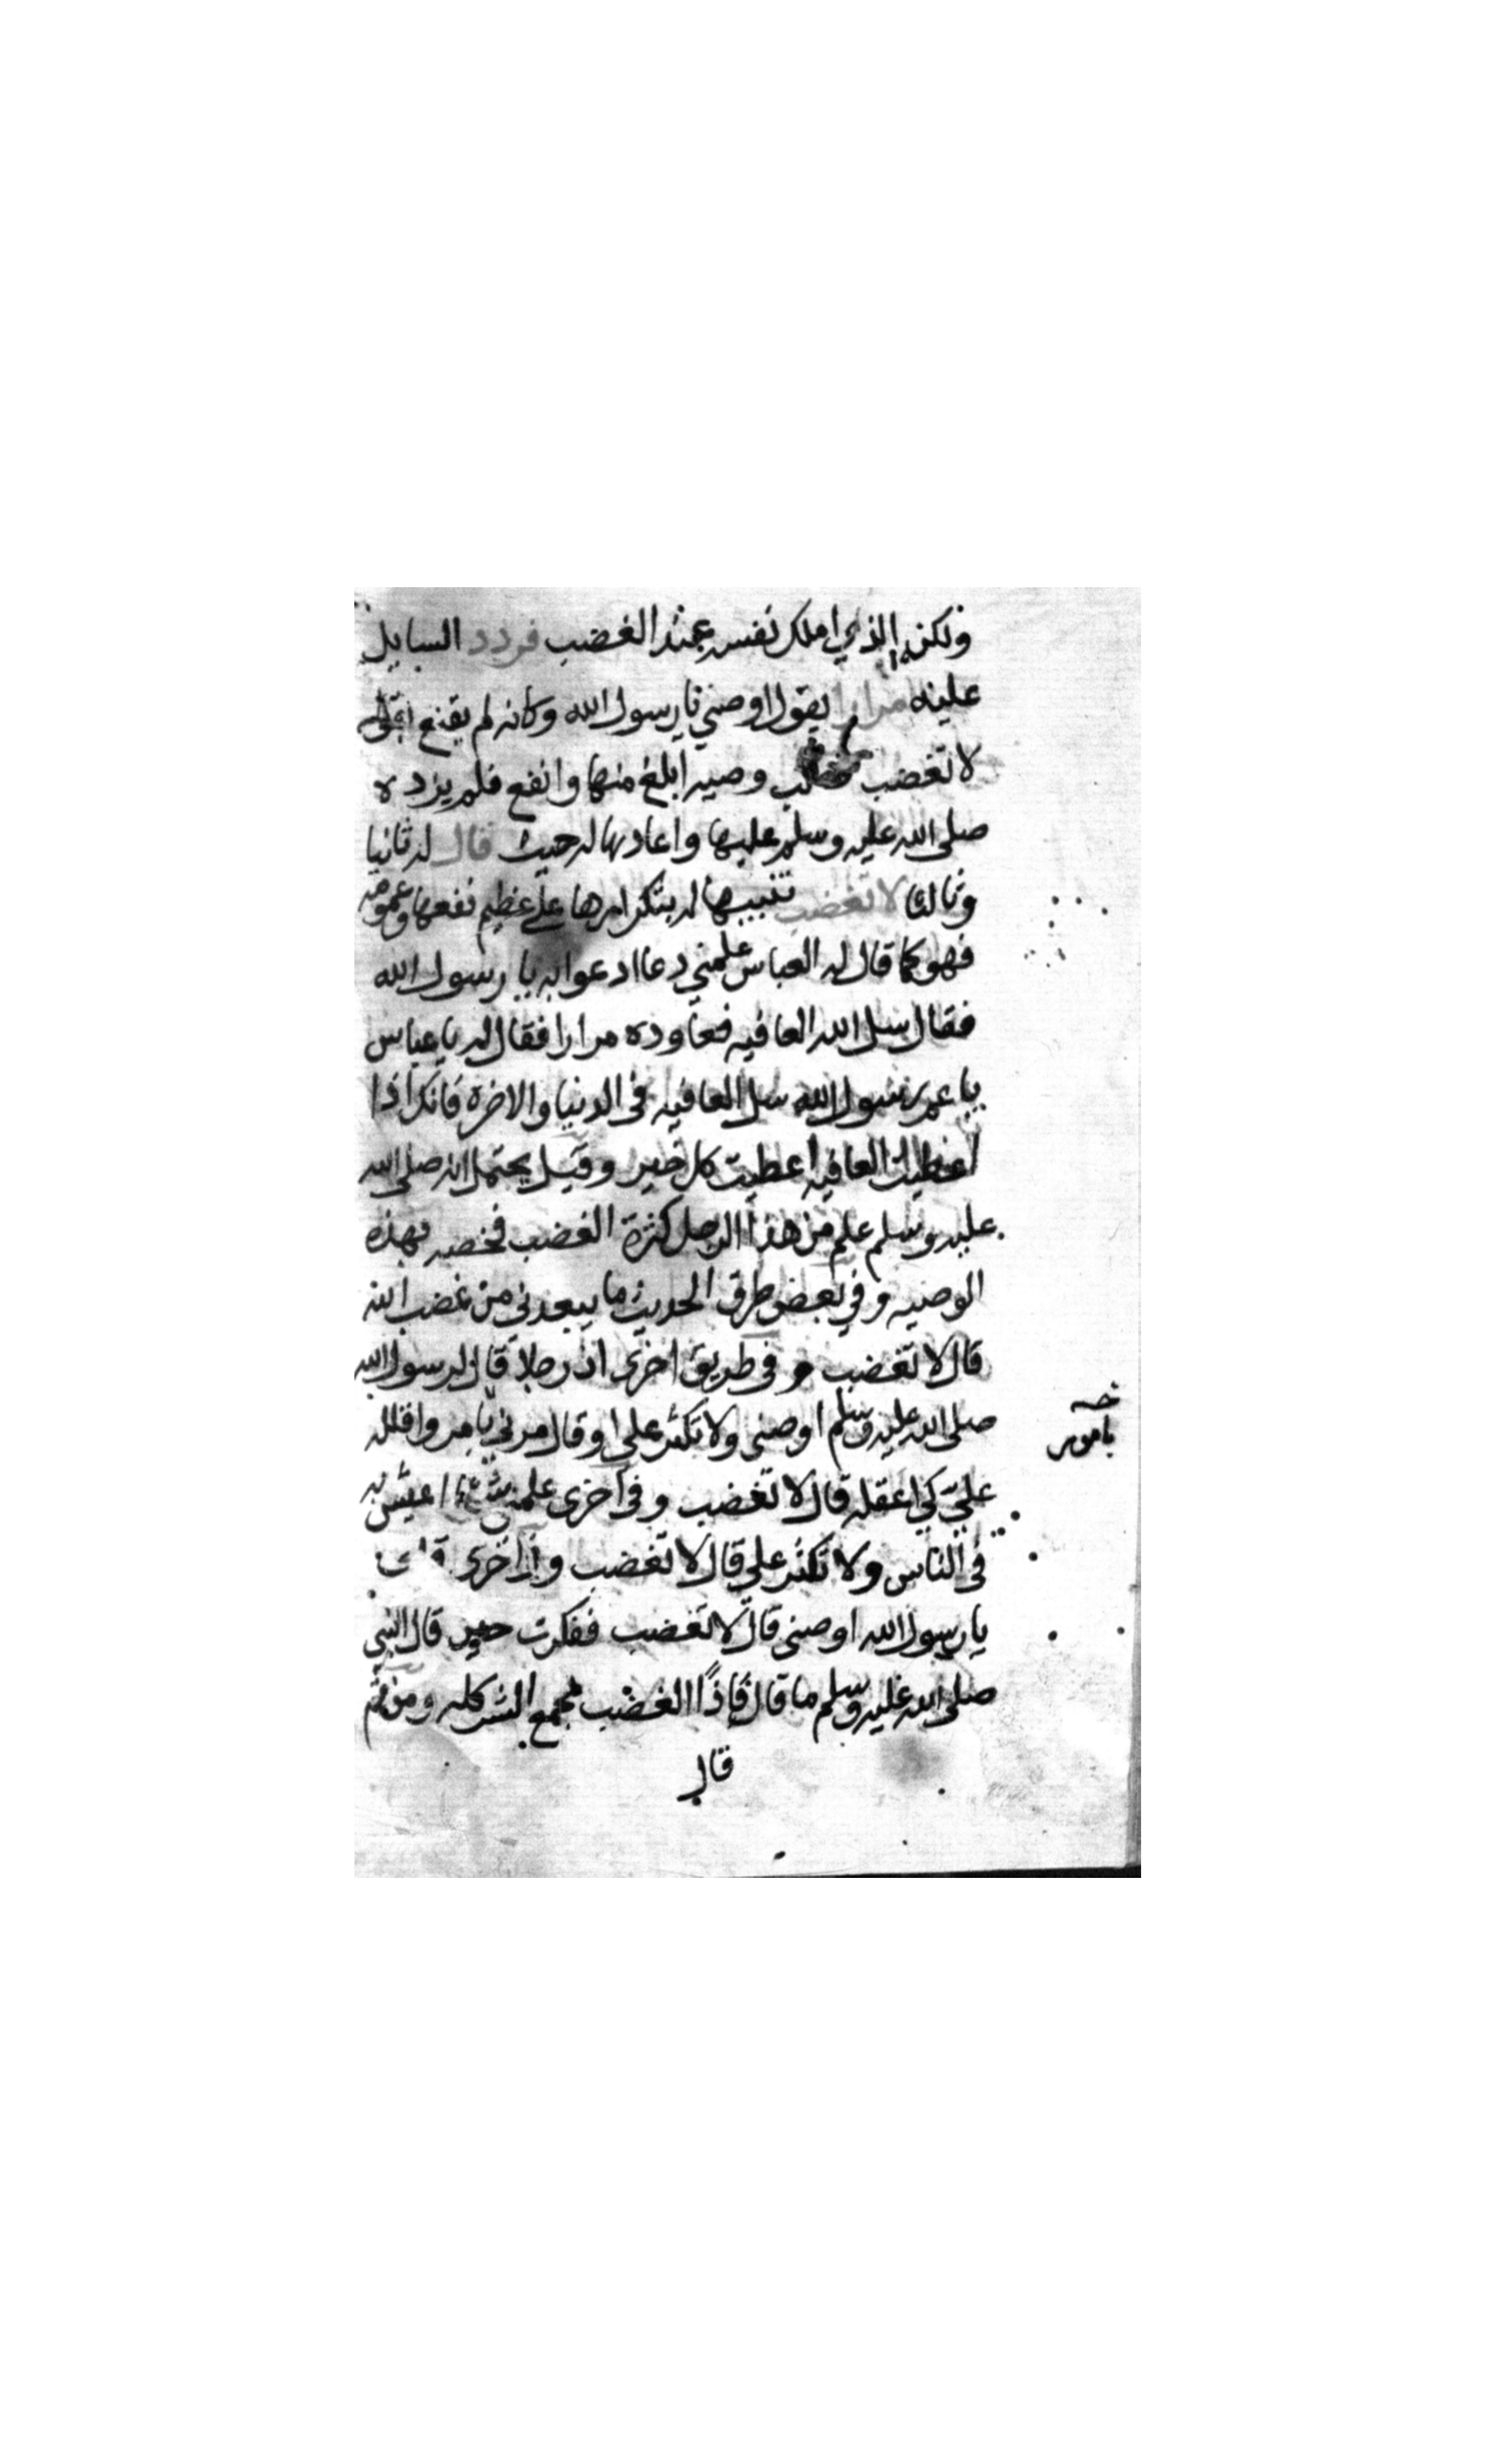 ولكن الذي املك نفسه عند الغضب فردد السايل
عليه مرارا يقول اوصني يا رسول الله وكانه لم يقنع بقوله
لا تغضب فطلب وصية ابلغ منها وانفع فلم يزده
صلى الله عليه وسلم عليها واعادها له حيث قال له ثانيا
وثالثا لا تغضب تنبيها له بتكرارها على عظيم نفعها وعمومه
فهو كما قال له العباس علمني دعا ادعوا به يا رسول الله
فقال سل الله العافيه فعاوده مرارا فقال له يا عباس
يا عم رسول الله سل العافيه في الدنيا والاخرة فانك اذا
اعطيت العافيه اعطيت كل خير وقيل يحتمل انه صلى الله
عليه وسلم علم من هذا الرجل كثرة الغضب فخصه بهذه
الوصيه وفي بعض طرق الحديث ما يبعدني من غضب الله
قال لا تغضب وفي طريق اخرى ان رجلا قال لرسول الله
صلى الله عليه وسلم اوصني ولا تكثر علي او قال مرني بامر واقلله
علي كي اعقله قال لا تغضب وفي اخرى علمني شيئا اعيش به
في الناس ولا تكثر علي قال لا تغضب وفي اخرى قلت
يا رسول الله اوصني قال لا تغضب ففكرت حين قال النبي
صلى الله عليه وسلم ما قال فاذا الغضب يجمع الشر كله ومن ثم
قال
بامور